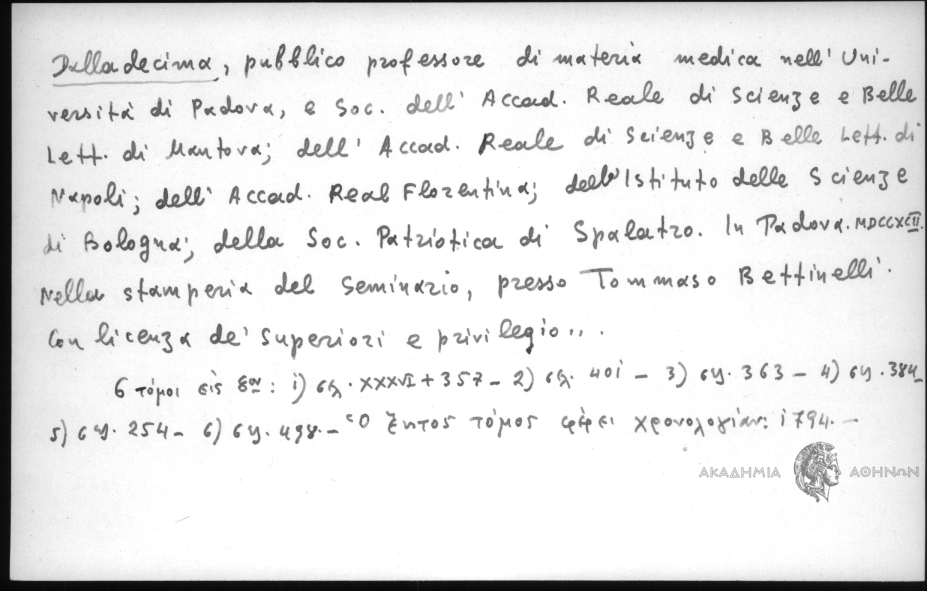 Dalladecima, pubblico professore di materia medica nell' Uni-
versità di Padova, e Soc. dell' Accad. Reale di Scienze e Belle
Lett. di Mantova; dell' Accad. Reale di Scienze e Belle Lett. di
Napoli; dell' Accad. Real Florentina; dell' Istituto delle Scienze
di Bologna; della Soc. Patriotica di Spalatro. In Padova. MDCCXCIII.
Nella stamperia del Seminario, presso Tommaso Bettinelli.
Con licenza de' Superiori e privilegio...
6 τόμοι εἰς 8ον: 1) σχ. XXXVI + 357 – 2) σχ. 401 – 3) σχ. 363 – 4) σχ. 384 –
5) σχ. 254 – 6) σχ. 498. – Ὁ ἕκτος τόμος φέρει χρονολογίαν: 1794. –
ΑΚΑΔΗΜΙΑ ΑΘΗΝΩΝ